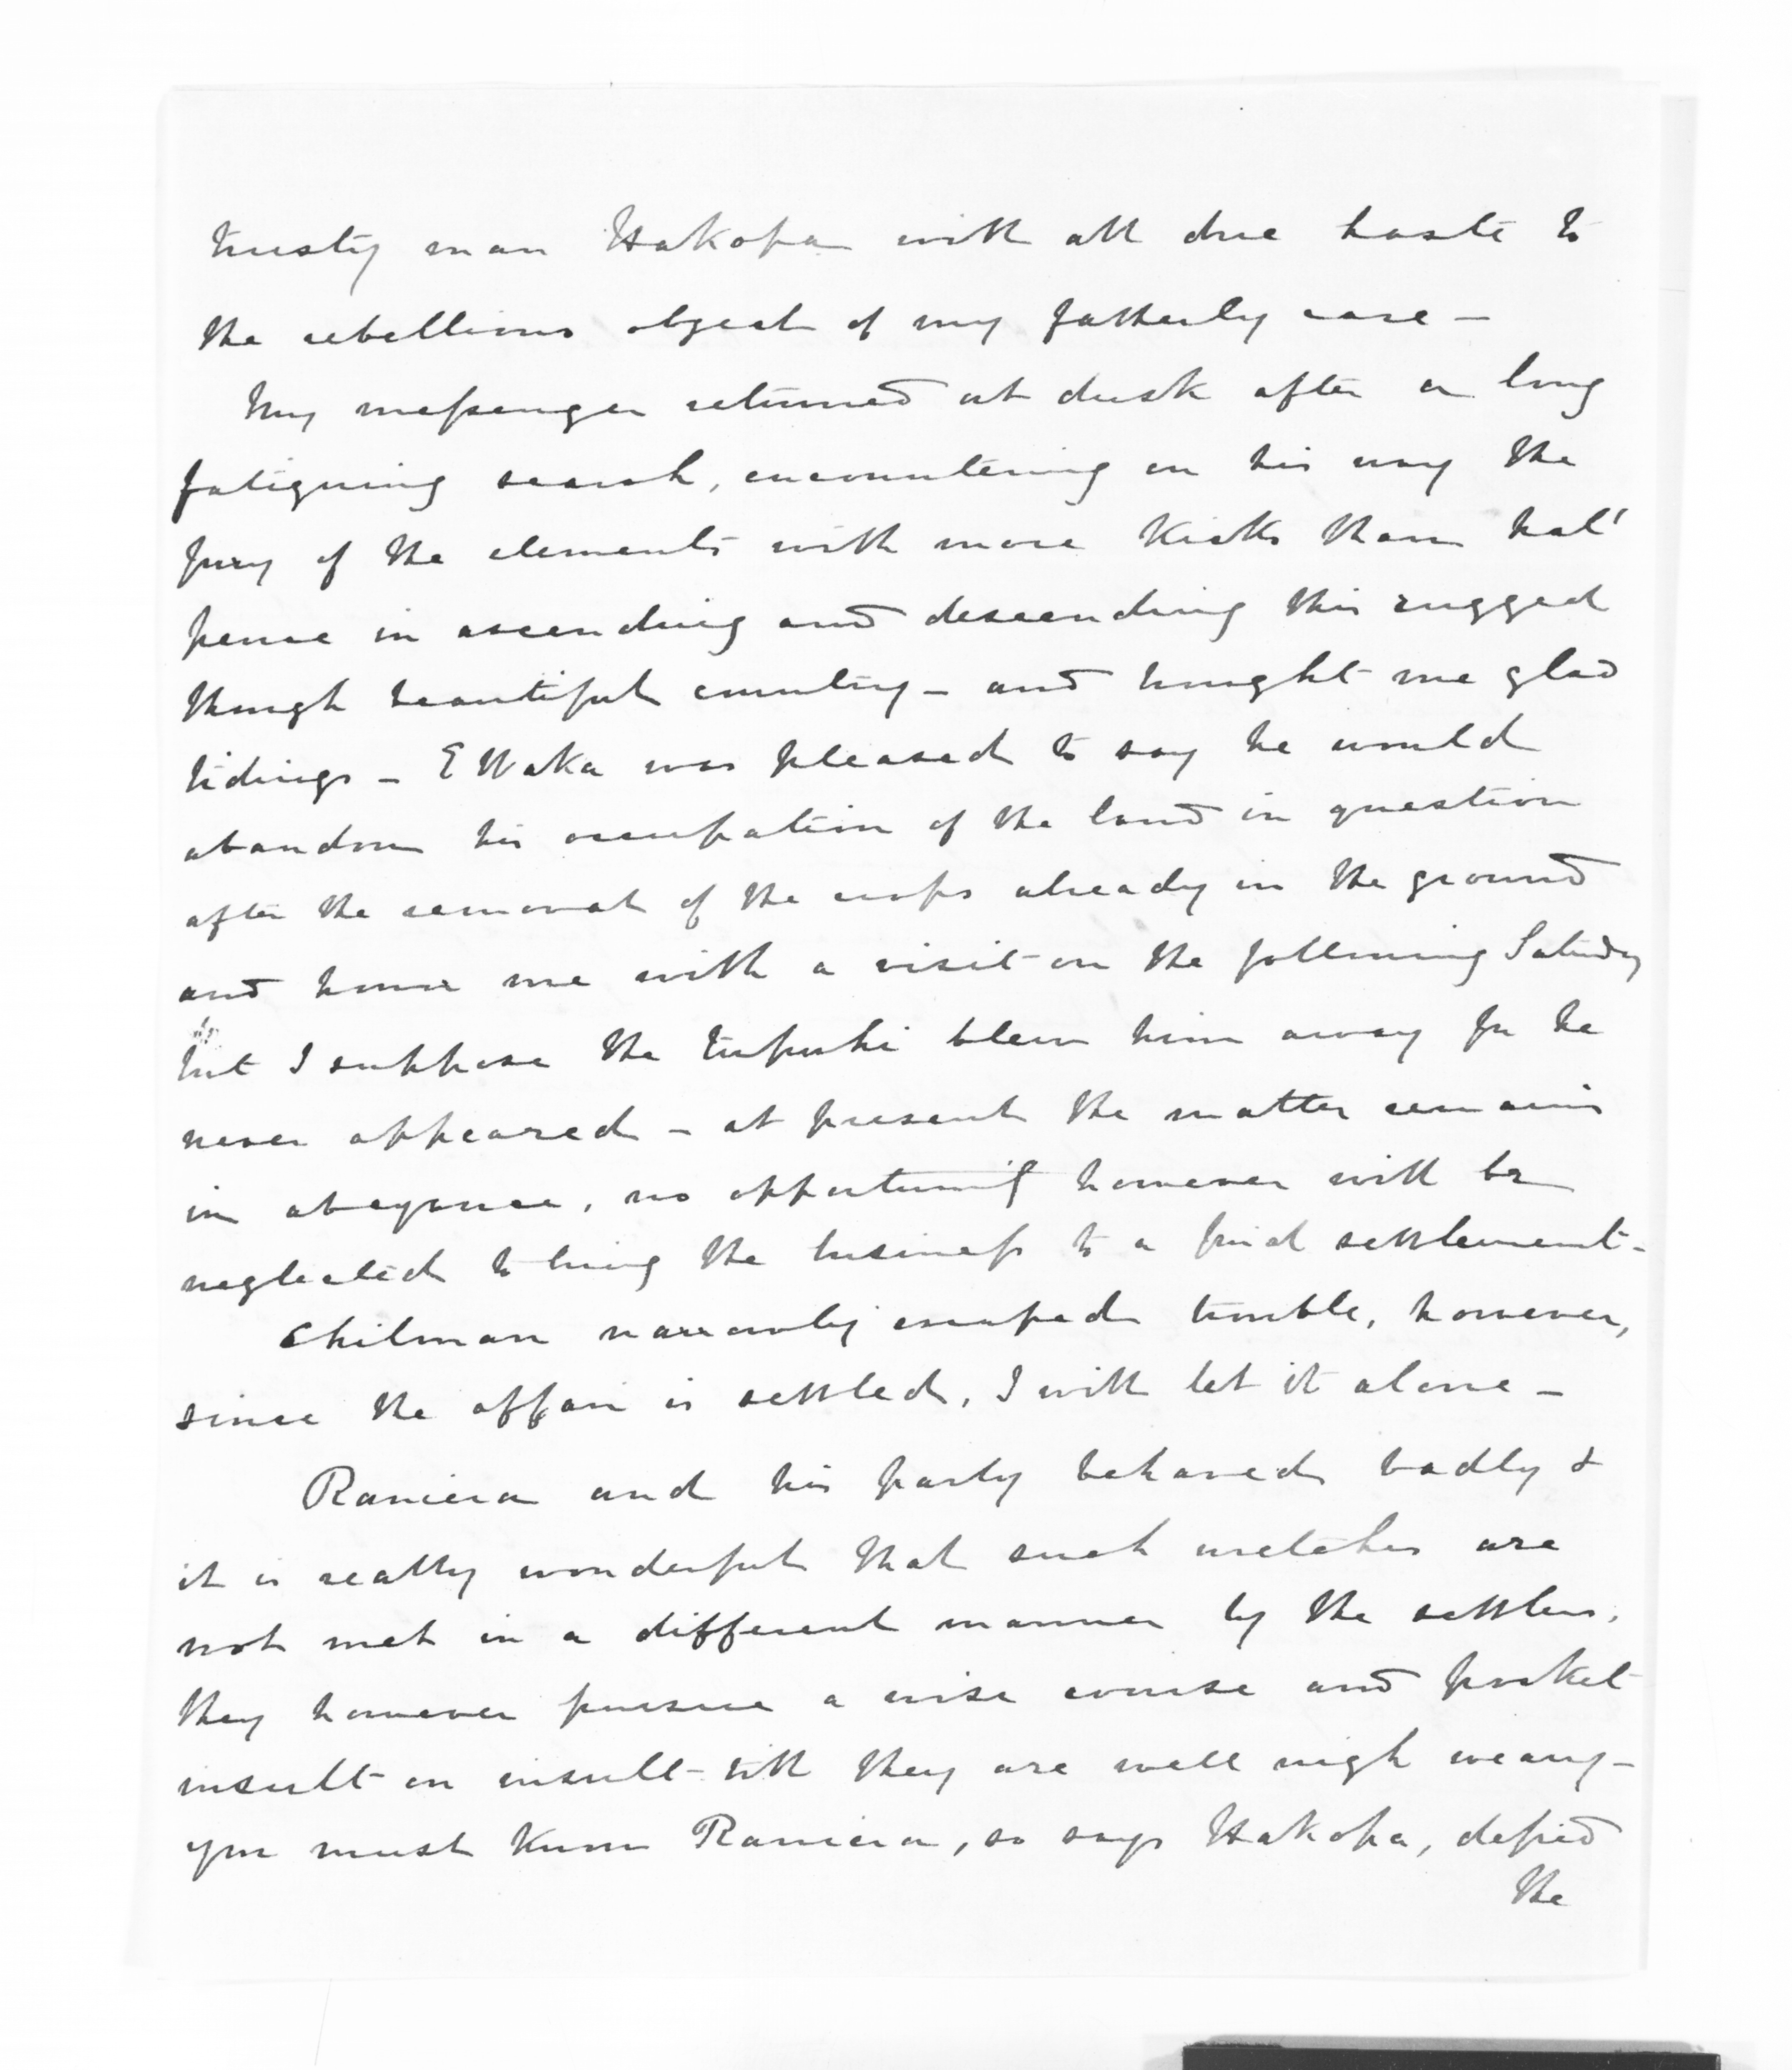 trusty man Hakopa with all due haste to
the rebellious object of my fatherly care –
My messenger returned at dusk after a long
fatiguing search, encountering on his way the
fury of the elements with more kicks than hal'
pence in ascending and descending this rugged
though beautiful country – and brought me glad
tidings – E Waka was pleased to say he would
abandon his occupation of the land in question
after the removal of the crops already in the ground
and honor me with a visit on the following Saturday
but I suppose the tupuhi blew him away for he
never appeared – at present the matter remains
in abeyance, no opportunity however will be
neglected to bring the business to a final settlement –
Chilman narrowly escaped trouble, however,
since the affair is settled, I will let it alone –
Raniera and his party behaved badly &
it is really wonderful that such wretches are
not met in a different manner by the settlers.
they however pursue a wise course and pocket
insult on insult till they are well nigh weary –
you must know Raniera, so says Hakopa, defied
the